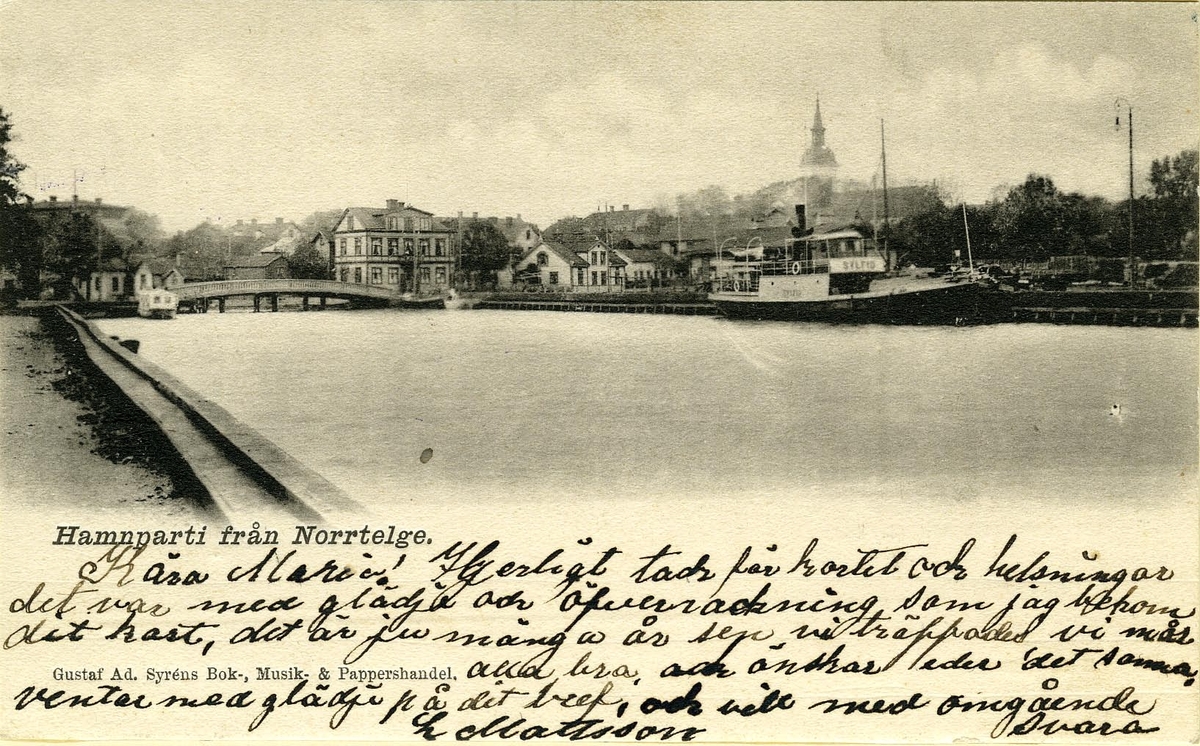 SYLFID
Hamnparti från Norrtelge.
Kära Maria! Hjerligt tack för kortet och helsningar
det var med glädje och öfverrackning som jag bekom
dit kort, det är ju många år sen vi träppades vi mår
alla bra, och önskar eder det samma,
Gustaf Ad. Syréns Bok-, Musik- & Pappershandel.
ventar med glädje på dit bref, och vill med omgående
svara
E Mattsson